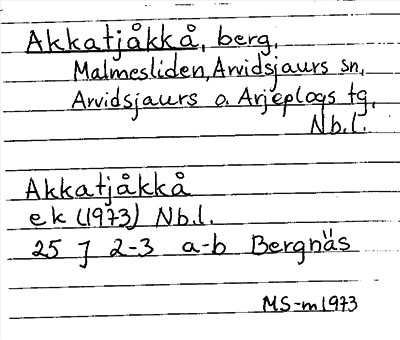 Akkatjåkkå, berg,
Malmesliden, Arvidsjaurs sn,
Arvidsjaurs o. Arjeplogs tg,
Nb.l.
Akkatjåkkå
ek (1973) Nb.l.
25 J 2-3 a-b Bergnäs
MS-m 1973